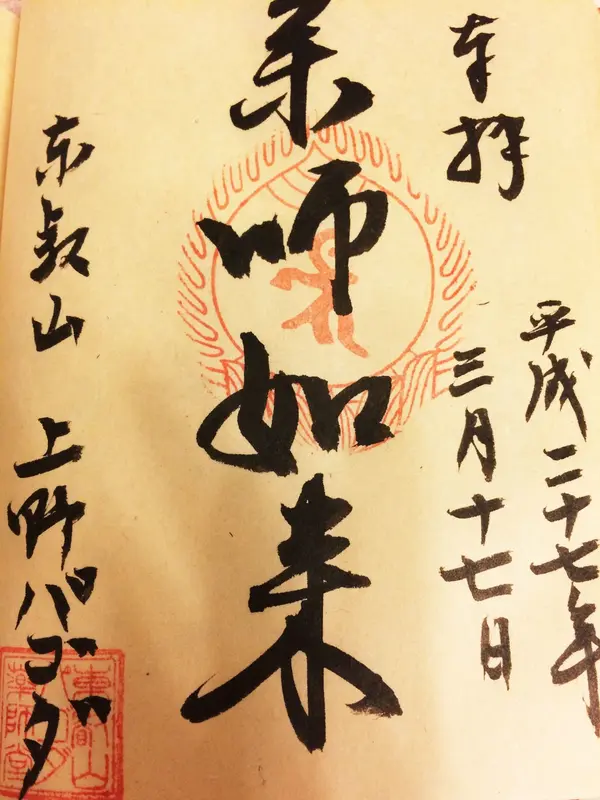 奉拝
平成二十七年
三月十七日
薬師如来
東叡山 上野パゴダ
東叡山
薬師堂